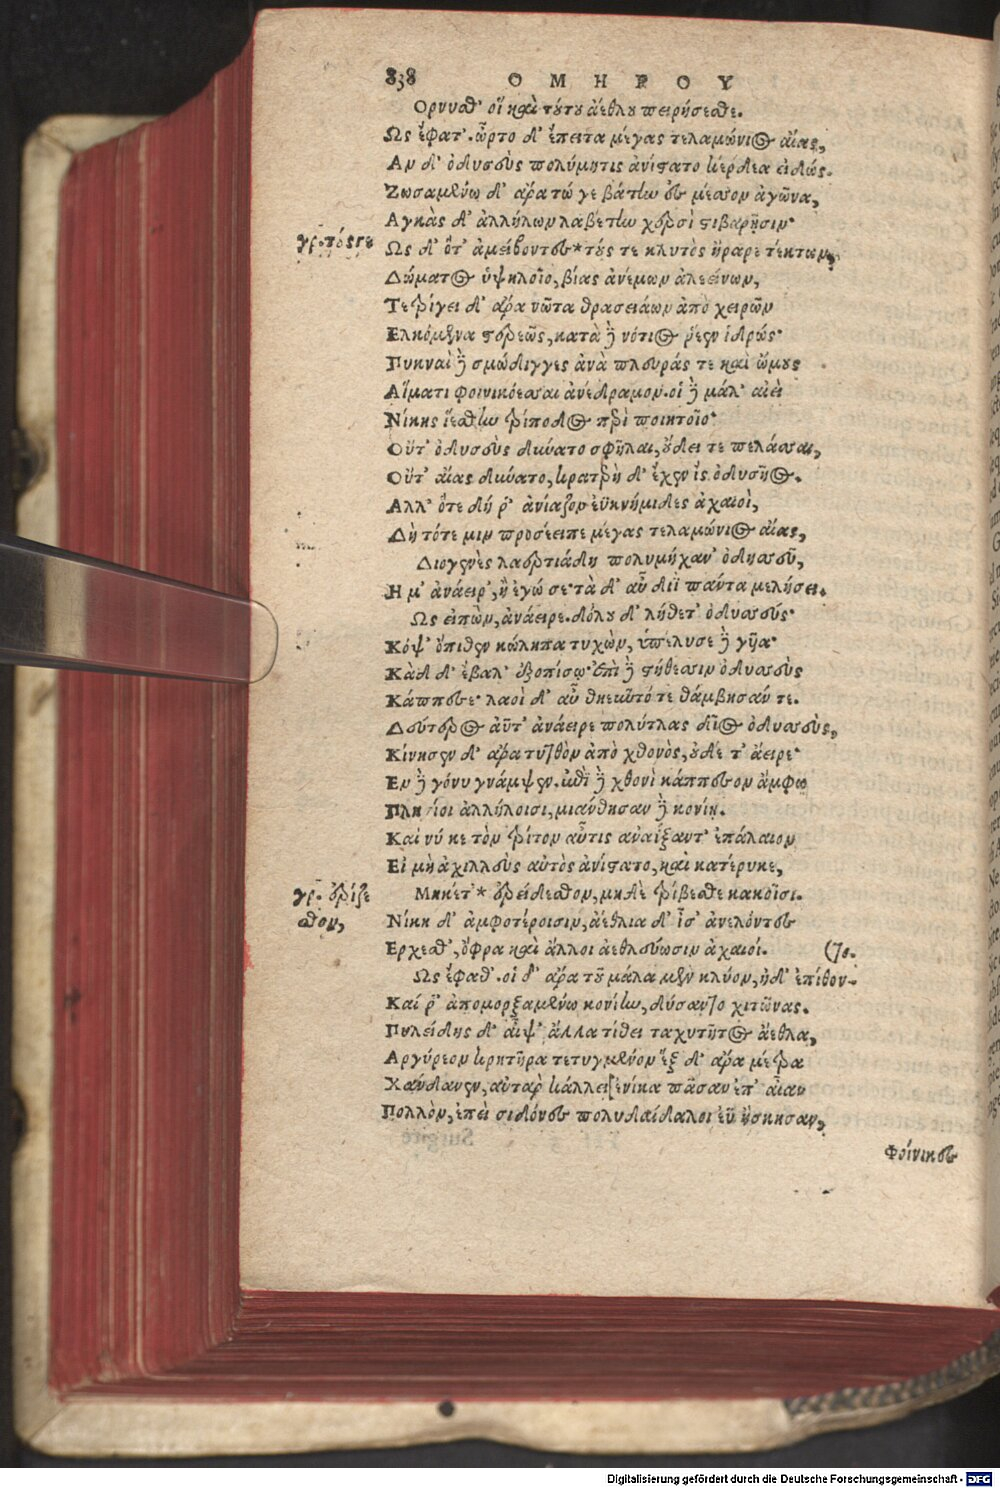 838 ΟΜΗΡΟΥ
Ορνυσθ' οἳ καὶ τούτου ἀέθλου πειρήσεσθε.
Ως ἔφατ'. ὦρτο δ' ἔπειτα μέγας τελαμώνιος αἴας,
Αν δ' ὀδυσσεὺς πολύμητις ἀνίστατο κέρδεα εἰδώς.
Ζωσαμένω δ' ἄρα τώ γε βάτην ἐς μέσσον ἀγῶνα,
Αγκὰς δ' ἀλλήλων λαβέτην χερσὶ στιβαρῇσιν·
γρ. τός γε
Ως δ' ὅτ' ἀμείβοντες * τούς τε κλυτὸς ἤραρε τέκτων,
Δώματος ὑψηλοῖο, βίας ἀνέμων ἀλεείνων,
Τετρίγει δ' ἄρα νῶτα θρασειάων ἀπὸ χειρῶν
Ελκόμενα στερεῶς, κατὰ δὲ νότιος ῥέεν ἱδρώς·
Πυκναὶ δὲ σμώδιγγες ἀνὰ πλευράς τε καὶ ὤμους
Αἵματι φοινικόεσσαι ἀνέδραμον. οἱ δὲ μάλ' αἰεὶ
Νίκης ἱέσθην τρίποδος περὶ ποιητοῖο·
Οὔτ' ὀδυσσεὺς δύνατο σφῆλαι, οὔδει τε πελάσσαι,
Οὔτ' αἴας δύνατο, κρατερὴ δ' ἔχεν ἲς ὀδυσῆος.
Αλλ' ὅτε δή ῥ' ἀνίαζον ἐϋκνήμιδες ἀχαιοὶ,
Δὴ τότε μιν προσέειπε μέγας τελαμώνιος αἴας,
Διογενὲς λαερτιάδη πολυμήχαν' ὀδυσσεῦ,
Η μ' ἀνάειρ', ἢ ἐγώ σε· τὰ δ' αὖ διῒ πάντα μελήσει.
Ως εἰπὼν, ἀνάειρε. δόλου δ' λήθετ' ὀδυσσεύς·
Κόψ' ὄπιθεν κώληπα τυχὼν, ὑπέλυσε δὲ γυῖα·
Κὰδ δ' ἔβαλ' ἐξοπίσω· ἐπὶ δὲ στήθεσσιν ὀδυσσεὺς
Κάππεσε· λαοὶ δ' αὖ θηεῦτό τε θάμβησάν τε.
Δεύτερος αὖτ' ἀνάειρε πολύτλας δῖος ὀδυσσεὺς,
Κίνησεν δ' ἄρα τυτθὸν ἀπὸ χθονὸς, οὐδέ τ' ἄειρε·
Εν δὲ γόνυ γνάμψεν. ἐπὶ δὲ χθονὶ κάππεσον ἄμφω
Πλησίοι ἀλλήλοισι, μιάνθησαν δὲ κονίῃ.
Καί νύ κε τὸν τρίτον αὖτις ἀναΐξαντ' ἐπάλαιον
Εἰ μὴ ἀχιλλεὺς αὐτὸς ἀνίστατο, καὶ κατέρυκε,
γρ. ἐρίζεσθον,
Μηκέτ' * ἐρείδεσθον, μηδὲ τρίβεσθε κακοῖσι.
Νίκη δ' ἀμφοτέροισιν, ἀέθλια δ' ἶσ' ἀνελόντες
Ερχεσθ', ὄφρα καὶ ἄλλοι ἀεθλεύωσιν ἀχαιοί.
Ως ἔφαθ'. οἱ δ' ἄρα τοῦ μάλα μὲν κλύον, ἠδ' ἐπίθον- (το.
Καί ῥ' ἀπομορξαμένω κονίην, δύσαντο χιτῶνας.
Πηλείδης δ' αἶψ' ἄλλα τίθει ταχυτῆτος ἄεθλα,
Αργύρεον κρητῆρα τετυγμένον· ἓξ δ' ἄρα μέτρα
Χάνδανεν, αὐτὰρ κάλλει ἐνίκα πᾶσαν ἐπ' αἶαν
Πολλὸν, ἐπεὶ σιδόνες πολυδαίδαλοι εὖ ἤσκησαν,
Φοίνικες
Digitalisierung gefördert durch die Deutsche Forschungsgemeinschaft - DFG